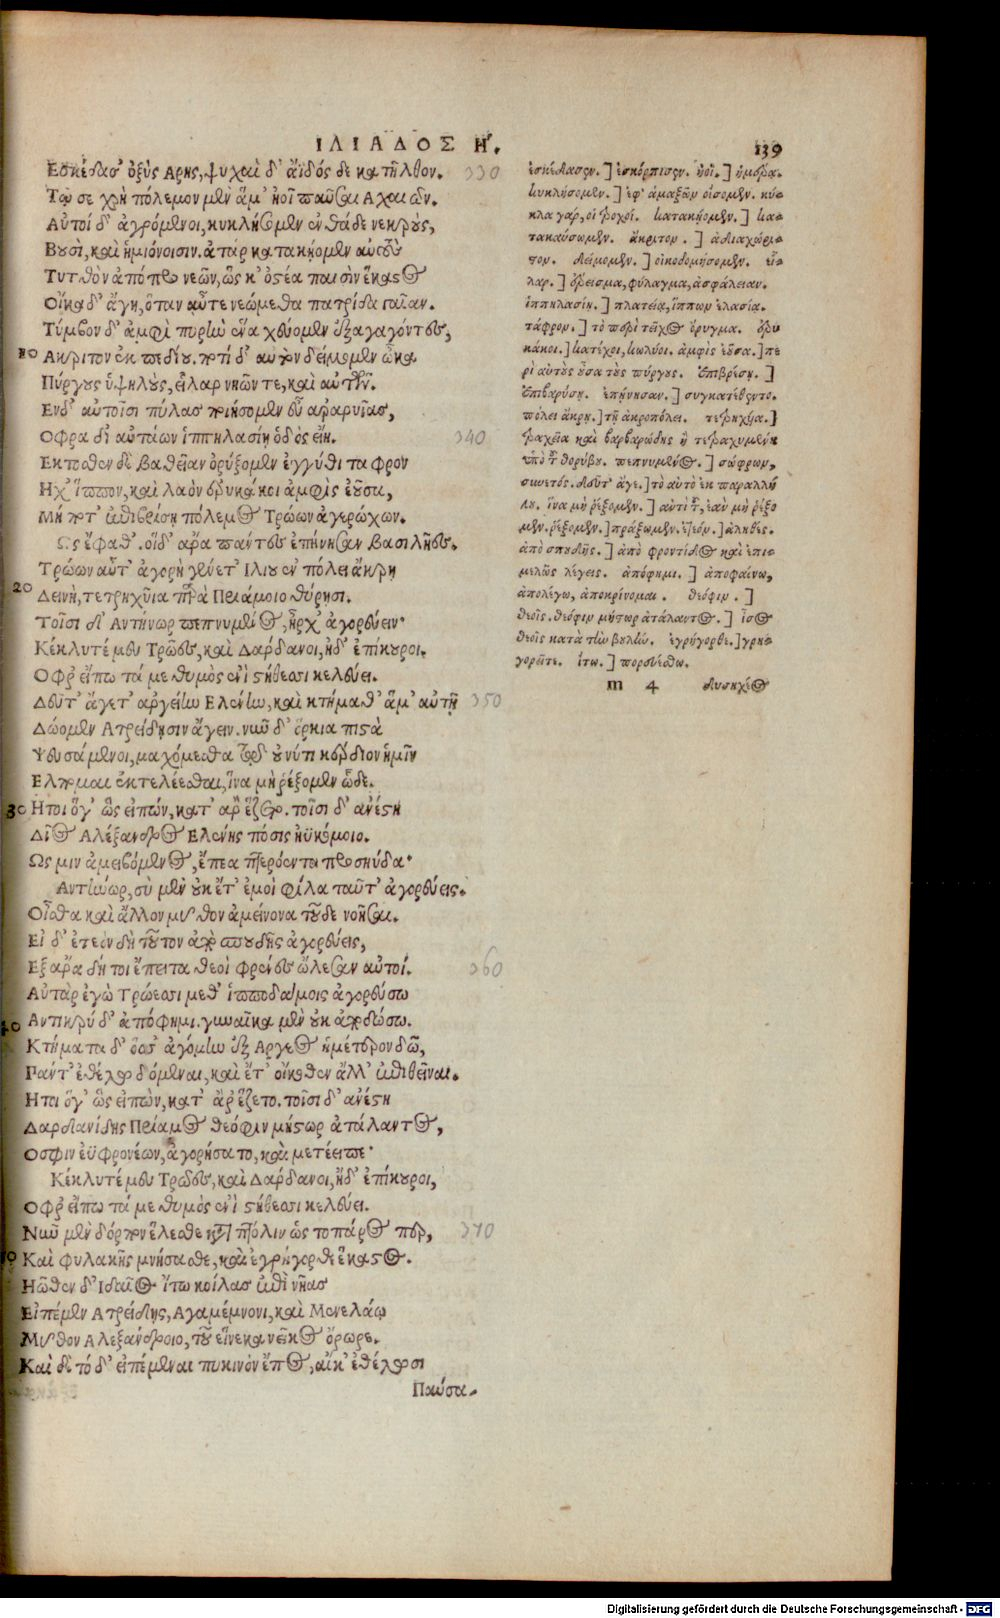 ΙΛΙΑΔΟΣ Η.
139
Εσκέδασ' ὀξὺς Αρης, ψυχαὶ δ' ἄϊδός δε κατῆλθον. 330
Τῷ σε χρὴ πόλεμον μὲν ἅμ' ἠοῖ παῦσαι Αχαιῶν.
Αὐτοί δ' ἀγρόμενοι, κυκλήσομεν ἐνθάδε νεκρὺς,
Βουσὶ, καὶ ἡμιόνοισιν. ἀτὰρ κατακήομεν αὐτοὺς
Τυτθὸν ἀπόπρο νεῶν, ὥς κ' ὀστέα παισὶν ἕκαστος
Οἴκαδ' ἄγῃ, ὅταν αὖτε νεώμεθα πατρίδα γαῖαν.
Τύμβον δ' ἀμφὶ πυρὶω ἕνα χεύομεν ἐξαγαγόντες,
10 Ακριτον ἐκ πεδίου. ποτὶ δ' αὐτὸν δείμομεν ὦκα
Πύργους ὑψηλοὺς, εἶλαρ νηῶν τε, καὶ αὐτῶν.
Ενδ' αὐτοῖσι πύλας ποιήσομεν εὖ αραρυῖας,
Οφρα δἰ αὐτάων ἱππηλασίη ὁδὸς εἴη. 340
Εκτοσθεν δὲ βαθεῖαν ὀρύξομεν ἐγγύθι ταφρον
Ηχ' ἵππον, καὶ λαὸν ἐρυκάκοι ἀμφὶς ἐοῦσα,
Μή ποτ' ἐπιβρίσῃ πόλεμος Τρώων ἀγερώχων.
Ως ἔφαθ'. οἱδ' ἄρα πάντες ἐπῄνησαν βασιλῆες.
Τρώων αὖτ' ἀγορὴ γένετ' Ιλίου ἐν πόλει ἄκρῃ
20 Δεινὴ, τετρηχῦια παρὰ Πριάμοιο θύρῃσι.
Τοῖσι δ' Αντήνωρ πεπνυμένος, ἦρχ' ἀγορεύειν·
Κέκλυτέ μευ Τρῶες, καὶ Δάρδανοι, ἠδ' ἐπίκουροι.
Οφρ' εἴπω τά με θυμὸς ἐνὶ στήθεσσι κελεύει.
Δεῦτ' ἄγετ' ἀργείὼ Ελένὼ, καὶ κτήμαθ' ἅμ' αὐτῇ 350
Δώομεν Ατρείδῃσιν ἄγειν. νῦν δ' ὅρκια πιστὰ
Ψευσάμενοι, μαχόμεσθα τῷ οὔ νύ τι κέρδιον ἡμῖν
Ελπομαι ἐκτελέεσθαι, ἵνα μὴ ῥέξομεν ὧδε.
30 Ητοι ὅγ' ὣς εἰπών, κατ' ἄρ' ἕζετο. τοῖσι δ' ἀνέστη
Δῖος Αλέξανδρος Ελένης πόσις ηϋκόμοιο.
Ως μιν ἀμειβόμενος, ἔπεα πτερόεντα προσηύδα·
Αντῆνορ, σὺ μὲν οὐκ ἔτ' ἐμοὶ φίλα ταῦτ' ἀγορεύεις.
Οἶσθα καὶ ἄλλον μῦθον ἀμείνονα τοῦδε νοῆσαι.
Εἰ δ' ἐτεὸν δὴ τοῦτον ἀπὸ σπουδῆς ἀγορεύεις,
Εξ ἄρα δή τοι ἔπειτα θεοὶ φρένας ὤλεσαν αὐτοί. 360
Αὐτὰρ ἐγὼ Τρώεσσι μεθ' ἱπποδάμοις ἀγορεύσω
40 Αντικρύ δ' ἀπόφημι. γυναῖκα μὲν οὐκ ἀποδώσω.
Κτήματα δ' ὅσσ' ἀγόμlω ἐξ Αργεος ἡμέτερον δῶ,
Πάντ' ἐθέλω δόμεναι, καὶ ἔτ' οἴκοθεν ἄλλ' ἐπιθεῖναι.
Ητοι ὅγ' ὣς εἰπὼν, κατ' ἄρ' ἕζετο. τοῖσι δ' ἀνέστη
Δαρδανίδης Πρίαμος θεόφιν μήστωρ ἀτάλαντος,
Οσφιν ἐϋφρονέων, ἀγορήσατο, καὶ μετέειπε·
Κέκλυτέ μευ Τρῶες, καὶ Δάρδανοι, ἠδ' ἐπίκουροι,
Οφρ' εἴπω τά με θυμὸς ἐνὶ στήθεσσι κελεύει.
Νῦν μὲν δόρπον ἕλεσθε κατὰ πτόλιν ὡς τοπάρος περ, 370
50 Καὶ φυλακῆς μνήσασθε, καὶ ἐγρήγορθε ἕκαστος.
Ηῶθεν δ' Ιδαῖος ἴτω κοίλας ἐπὶ νῆας
Εἰπέμεν Ατρείδῃς, Αγαμέμνονι, καὶ Μενελάῳ
Μῦθον Αλεξάνδροιο, τοῦ εἵνεκα νεῖκος ὄρωρε.
Καὶ δὲ τό δ' εἰπέμεναι πυκινὸν ἔπος, αἴκ' ἐθέλωσι
Παύσα-
ἐσκέδασεν.] ἐσκόρπισεν. ἠοῖ.] ἡμέρᾳ.
κυκλήσομεν.] ἐφ' ἁμαξῶν οἴσομεν. κύ-
κλα γαρ, οἱ τροχοί. κατακήομεν.] κα-
τακαύσωμεν. ἄκριτον.] ἀδιαχώρι-
τον. δείμομεν.] οἰκοδομήσομεν. εἶ-
λαρ.] ἔρεισμα, φύλαγμα, ἀσφάλειαν.
ἱππηλασίη.] πλατεῖα, ἵππων ἐλασία.
τάφρον.] τὸ περὶ τεῖχος ὄρυγμα. ἐρυ
κάκοι.] κατέχοι, κωλύοι. ἀμφὶς ἐοῦσα.] πε
ρὶ αὐτοὺς οὖσα τοὺς πύργους. ἐπιβρίσῃ.]
ἐπιβαρύσῃ. ἐπῄνησαν.] συγκατέθεντο.
πόλει ἄκρῃ.] τῇ ἀκροπόλει. τετρηχῦα.]
τραχεῖα καὶ βαρβαρώδης ἢ τετραχυμένη
ὑπὸ τοῦ θορύβου. πεπνυμένος.] σώφρων,
συνετός. δεῦτ' ἄγε.] τὸ αὐτὸ ἐκ παραλλή
λου. ἵνα μὴ ῥέξομεν.] αντὶ τοῦ, ἐὰν μὴ ῥέξο
μεν. ῥέξομεν.] πράξωμεν. ἐτεόν.] ἀληθές.
ἀπὸ σπουδῆς.] ἀπὸ φροντίδος καὶ ἐπι-
μελῶς λέγεις. ἀπόφημι.] ἀποφαίνω,
ἀπολέγω, ἀποκρίνομαι. θεόφιν.]
θεοῖς. θεόφιν μήστωρ ἀτάλαντος.] ἶσος
θεοῖς κατὰ τὴν βουλήν. ἐγρήγορθε.] γρη-
γορεῖτε. ἴτω.] πορευέσθω.
m 4 δυσηχέος
Digitalisierung gefördert durch die Deutsche Forschungsgemeinschaft - DFG